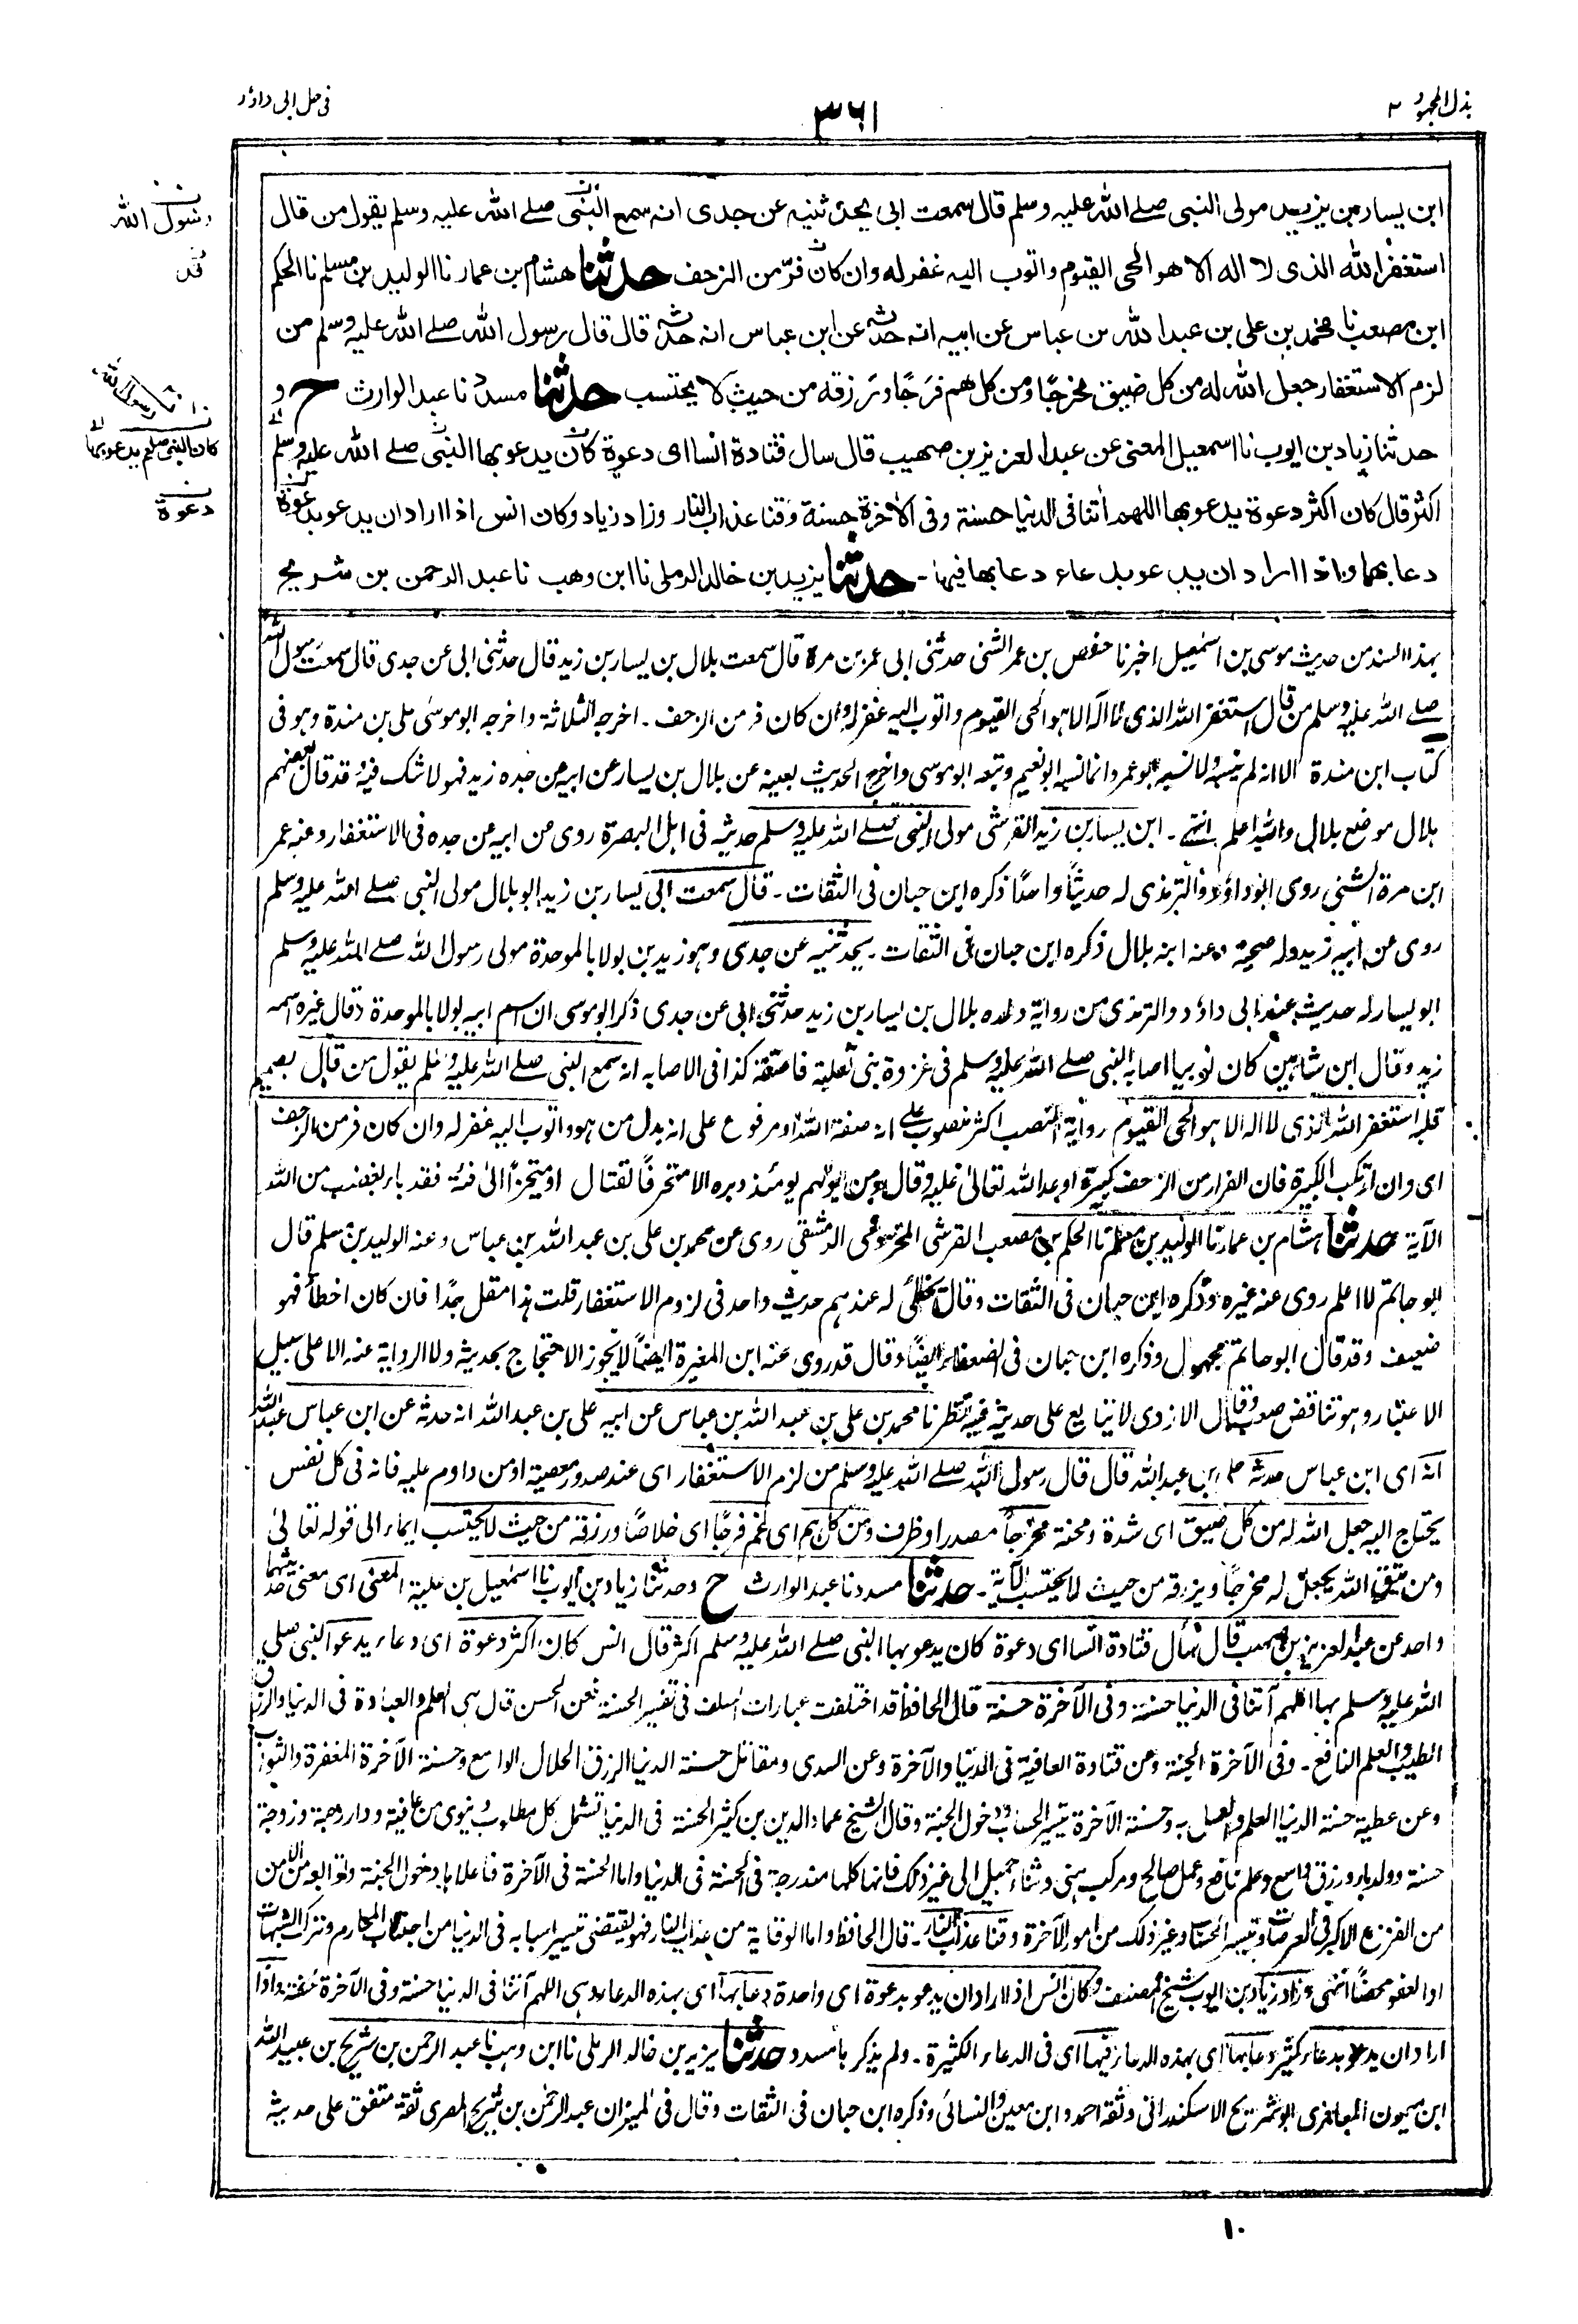 بذل المجهود ٢
٣٦١
فى حل ابى داؤد
ابن يسار بن يزيد مولى النبى صلے الله عليه وسلم قال سمعت ابى يحدثنيه عن جدى انه سمع النبى صلے الله عليه وسلم يقول من قال
استغفر الله الذى لا اله الا هو الحى القيوم واتوب اليه غفر له وان كان فرّ من الزحف حدثنا هشام بن عمار نا الوليد بن مسلم نا الحكم
ابن مصعب نا محمد بن على بن عبد الله بن عباس عن ابيه انه حدثه عن ابن عباس انه حدثه قال قال رسول الله صلے الله عليه وسلم من
لزم الاستغفار جعل الله له من كل ضيق مخرجًا ومن كل هم فرَجًا ورزقه من حيث لا يحتسب حدثنا مسدد نا عبد الوارث ح و
حدثنا زياد بن ايوب نا اسمعيل المعنى عن عبد العزيز بن صهيب قال سال قتادة انسا اى دعوة كان يدعو بها النبى صلے الله عليه وسلم
اكثر قال كان اكثر دعوة يدعو بها اللهم اٰتنا فى الدنيا حسنة وفى الاٰخرة حسنة وقنا عذاب النار وزاد زياد وكان انس اذا اراد ان يدعو بدعوة
دعا بها واذا اراد ان يدعو بدعاء دعا بها فيها ۔ حدثنا يزيد بن خالد الرملى نا ابن وهب نا عبد الرحمن بن شريح
رسول الله
قد
نا رسول الله
كان النبى صلعم يدعو بها
دعوة
بهذا السند من حديث موسى بن اسمٰعيل اخبرنا حفص بن عمر الشنى حدثنى ابى عمر بن مرة قال سمعت بلال بن يسار بن زيد قال حدثنى ابى عن جدى قال سمعت رسول الله
صلے الله عليه وسلم من قال استغفر الله الذى لا اله الا هو الحى القيوم واتوب اليه غفر له وان كان فر من الزحف ۔ اخرجه الثلاثة واخرجه ابو موسىٰ على بن مندة وهو فى
كتاب ابن مندة الا انه لم ينسبه ولا نسبه ابو عمر وانما نسبه ابو نعيم وتبعه ابو موسى واخرج الحديث بعينه عن بلال بن يسار عن ابيه عن جده زيد فهو لا شك فيه قد قال بعضهم
بلال موضع بلال والله اعلم انتهے ۔ ابن يسار بن زيد القرشى مولى النبى صلے الله عليه وسلم حديثه فى اهل البصرة روى عن ابيه عن جده فى الاستغفار وعنه عمر
ابن مرة الشنى روى ابو داؤد والترمذى له حديثًا واحدًا ذكره ابن حبان فى الثقات ۔ قال سمعت ابى يسار بن زيد ابو بلال مولى النبى صلے الله عليه وسلم
روى عن ابيه زيد وله صحبة وعنه ابنه بلال ذكره ابن حبان فى الثقات ۔ يحدثنيه عن جدى وهو زيد بن بولا بالموحدة مولى رسول الله صلے الله عليه وسلم
ابو يسار له حديث عند ابى داؤد والترمذى من رواية ولده بلال بن يسار بن زيد حدثنى ابى عن جدى ذكر ابو موسى ان اسم ابيه بولا بالموحدة وقال غيره اسمه
زيد وقال ابن شاهين كان نوبيا اصابه النبى صلے الله عليه وسلم فى غزوة بنى ثعلبة فاعتقه كذا فى الاصابه انه سمع النبى صلے الله عليه وسلم يقول من قال بصميم
قلبه استغفر الله الذى لا اله الا هو الحى القيوم رواية النصب اكثر منصوب على انه صفة الله او مرفوع على انه بدل من هو واتوب اليه غفر له وان كان فر من الزحف
اى وان ارتكب الكبيرة فان الفرار من الزحف كبيرة اوعد الله تعالىٰ عليه وقال ومن يولهم يومئذ دبره الا متحرفًا لقتال او متحيزًا الىٰ فئة فقد باء بغضب من الله
الآية حدثنا هشام بن عمار نا الوليد بن مسلم نا الحكم بن مصعب القرشى المخزومى الدمشقى روى عن محمد بن على بن عبد الله بن عباس وعنه الوليد بن مسلم قال
ابو حاتم لا اعلم روى عنه غيره وذكره ابن حبان فى الثقات وقال يخطئ له عندهم حديث واحد فى لزوم الاستغفار قلت هذا مقل جدًا فان كان اخطأ فهو
ضعيف وقد قال ابو حاتم مجهول وذكره ابن حبان فى الضعفاء ايضًا وقال قد روى عنه ابن المغيرة ايضًا لا يجوز الاحتجاج بحديثه ولا الرواية عنه الا على سبيل
الاعتبار وهو تناقض صعب وقال الازدى لا يتابع على حديثه فيه نظر نا محمد بن على بن عبد الله بن عباس عن ابيه على بن عبد الله انه حدثه عن ابن عباس عبد الله
انه اى ابن عباس حدثه على بن عبد الله قال قال رسول الله صلے الله عليه وسلم من لزم الاستغفار اى عند صدور معصية او من داوم عليه فانه فى كل نفس
يحتاج اليه جعل الله له من كل ضيق اى شدة ومحنة مخرجاً مصدر او ظرف ومن كل هم اى غم فرجًا اى خلاصًا ورزقه من حيث لا يحتسب ايماء الى قوله تعالىٰ
ومن يتق الله يجعل له مخرجًا ويرزقه من حيث لا يحتسب الآية ۔ حدثنا مسدد نا عبد الوارث ح وحدثنا زياد بن ايوب نا اسمٰعيل بن علية المعنى اى معنى حديثهما
واحد عن عبد العزيز بن صهيب قال سأل قتادة انسا اى دعوة كان يدعو بها النبى صلے الله عليه وسلم اكثر قال انس كان اكثر دعوة اى دعاء يدعو النبى صلى
الله عليه وسلم بها اللهم آتنا فى الدنيا حسنة وفى الآخرة حسنة قال الحافظ قد اختلفت عبارات السلف فى تفسير الحسنة فعن الحسن قال هى العلم والعبادة فى الدنيا والرزق
الطيب والعلم النافع ۔ وفى الآخرة الجنة وعن قتادة العافية فى الدنيا والآخرة وعن السدى ومقاتل حسنة الدنيا الرزق الحلال الواسع وحسنة الآخرة المغفرة والثواب
وعن عطية حسنة الدنيا العلم والعمل به وحسنة الآخرة تيسير الحساب ودخول الجنة وقال الشيخ عماد الدين بن كثير الحسنة فى الدنيا تشمل كل مطلوب دنيوى من عافية ودار رحبة وزوجة
حسنة وولد بار ورزق واسع وعلم نافع وعمل صالح ومركب هنى وثناء جميل الى غير ذلك فانها كلها مندرجة فى الحسنة فى الدنيا واما الحسنة فى الآخرة فاعلاها دخول الجنة وتوابعه من الامن
من الفزع الاكبر فى العرصات وتيسير الحساب وغير ذلك من امور الآخرة وقنا عذاب النار ۔ قال الحافظ واما الوقاية من عذاب النار فهو يقتضى تيسير اسبابه فى الدنيا من اجتناب المحارم وترك الشبهات
او العفو محضًا انتهى وزاد زياد بن ايوب شيخ المصنف وكان انس اذا اراد ان يدعو بدعوة اى واحدة دعا بها اى بهذه الدعاء وهى اللهم آتنا فى الدنيا حسنة وفى الآخرة حسنة واذا
اراد ان يدعو بدعاء كثير دعا بها اى بهذه الدعاء فيها اى فى الدعاء الكثيرة ۔ ولم يذكر ها مسدد حدثنا يزيد بن خالد الرملى نا ابن وهب نا عبد الرحمن بن شريح بن عبيد الله
ابن ميمون المعافرى ابو شريح الاسكندرانى وثقه احمد وابن معين والنسائى وذكره ابن حبان فى الثقات وقال فى الميزان عبد الرحمٰن بن شريح المصرى ثقة متفق على حديثه
١٠